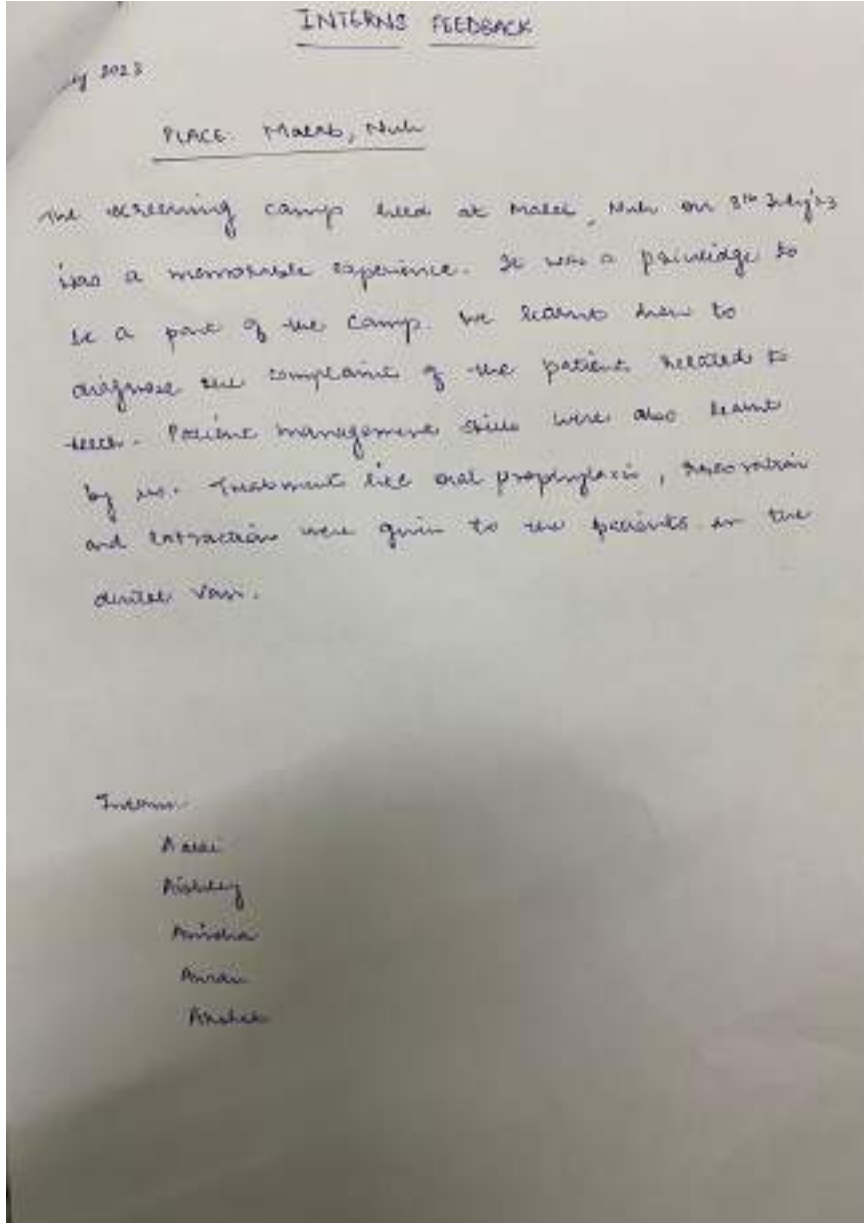 INTERNS FEEDBACK
2023
PLACE: Malab, Nuh
The screening camp held at Malab, Nuh on 8th July'23
was a memorable experience. It was a priviledge to
be a part of the camp. We learnt how to
diagnose the complaint of the patient related to
teeth. Patient management skills were also learnt
by us. Treatment like oral prophylaxis, restoration
and extraction were given to the patients in the
dental van.
Interns
Anisha